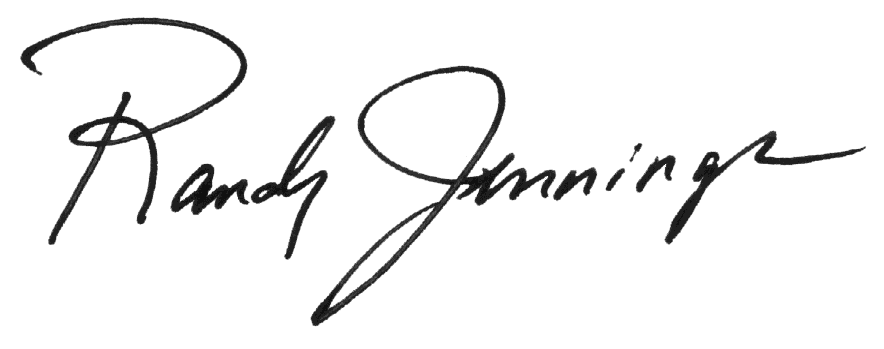 Randy Jennings